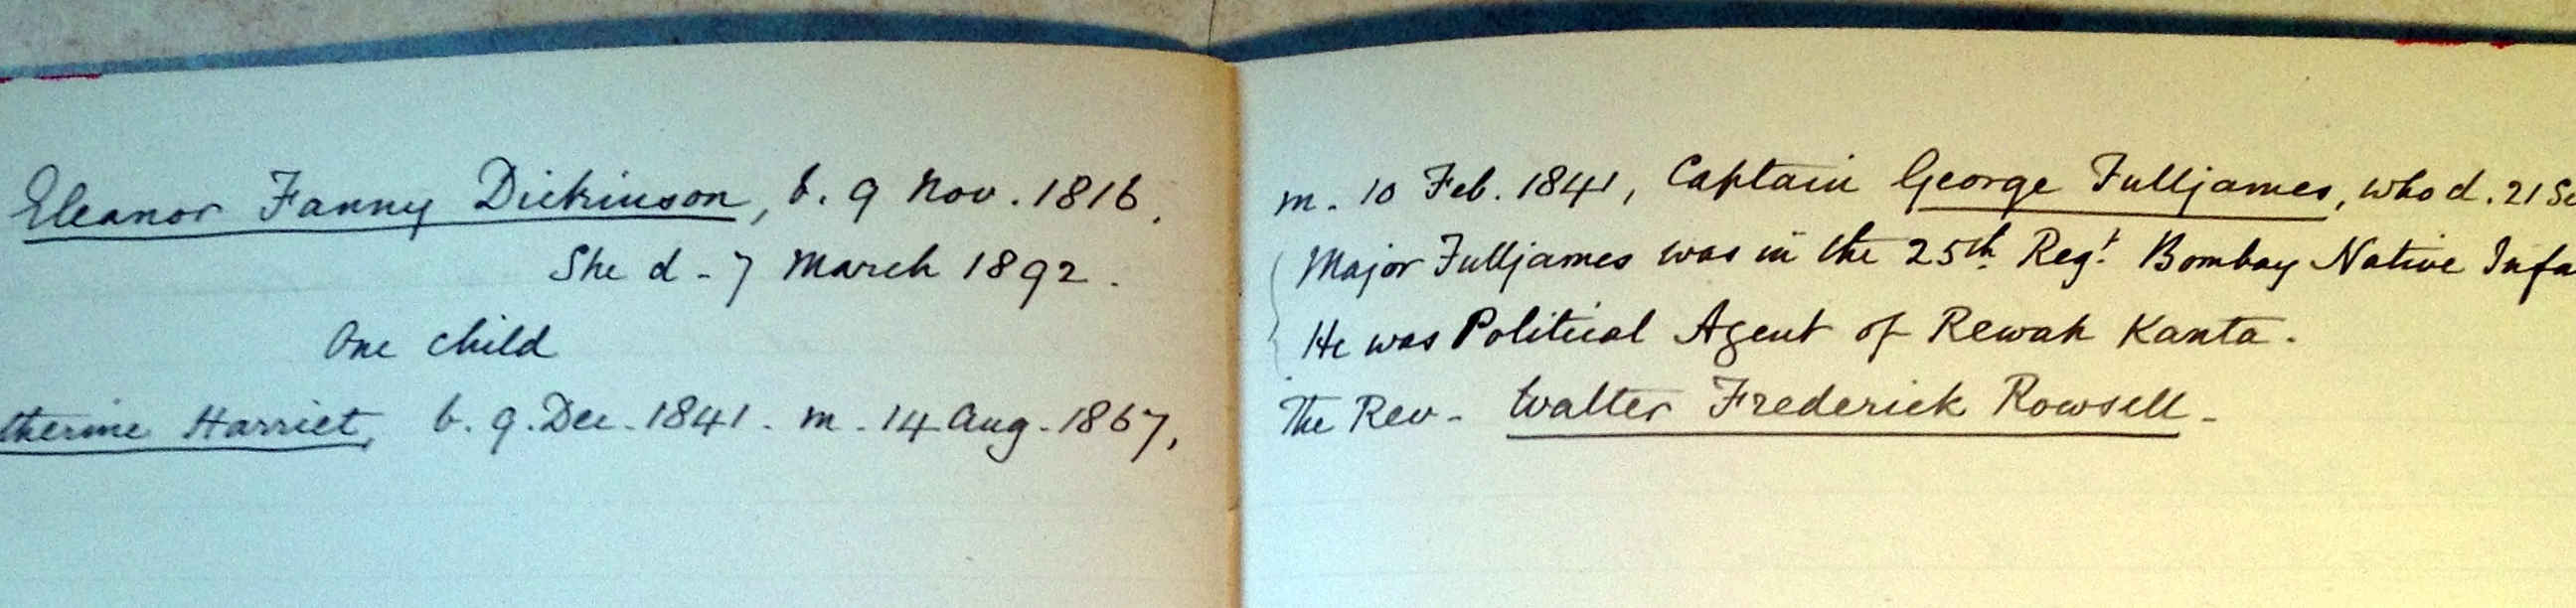 Eleanor Fanny Dickinson, b. 9 Nov. 1816.
She d - 7 March 1892.
One child
therine Harriet, b. 9. Dec. 1841. m. 14 Aug. 1867,
m. 10 Feb. 1841, Captain George Fulljames, who d. 21 Se
Major Fulljames was in the 25th Regt Bombay Native Infa
He was Political Agent of Rewah Kanta.
The Rev. Walter Frederick Rowsell.